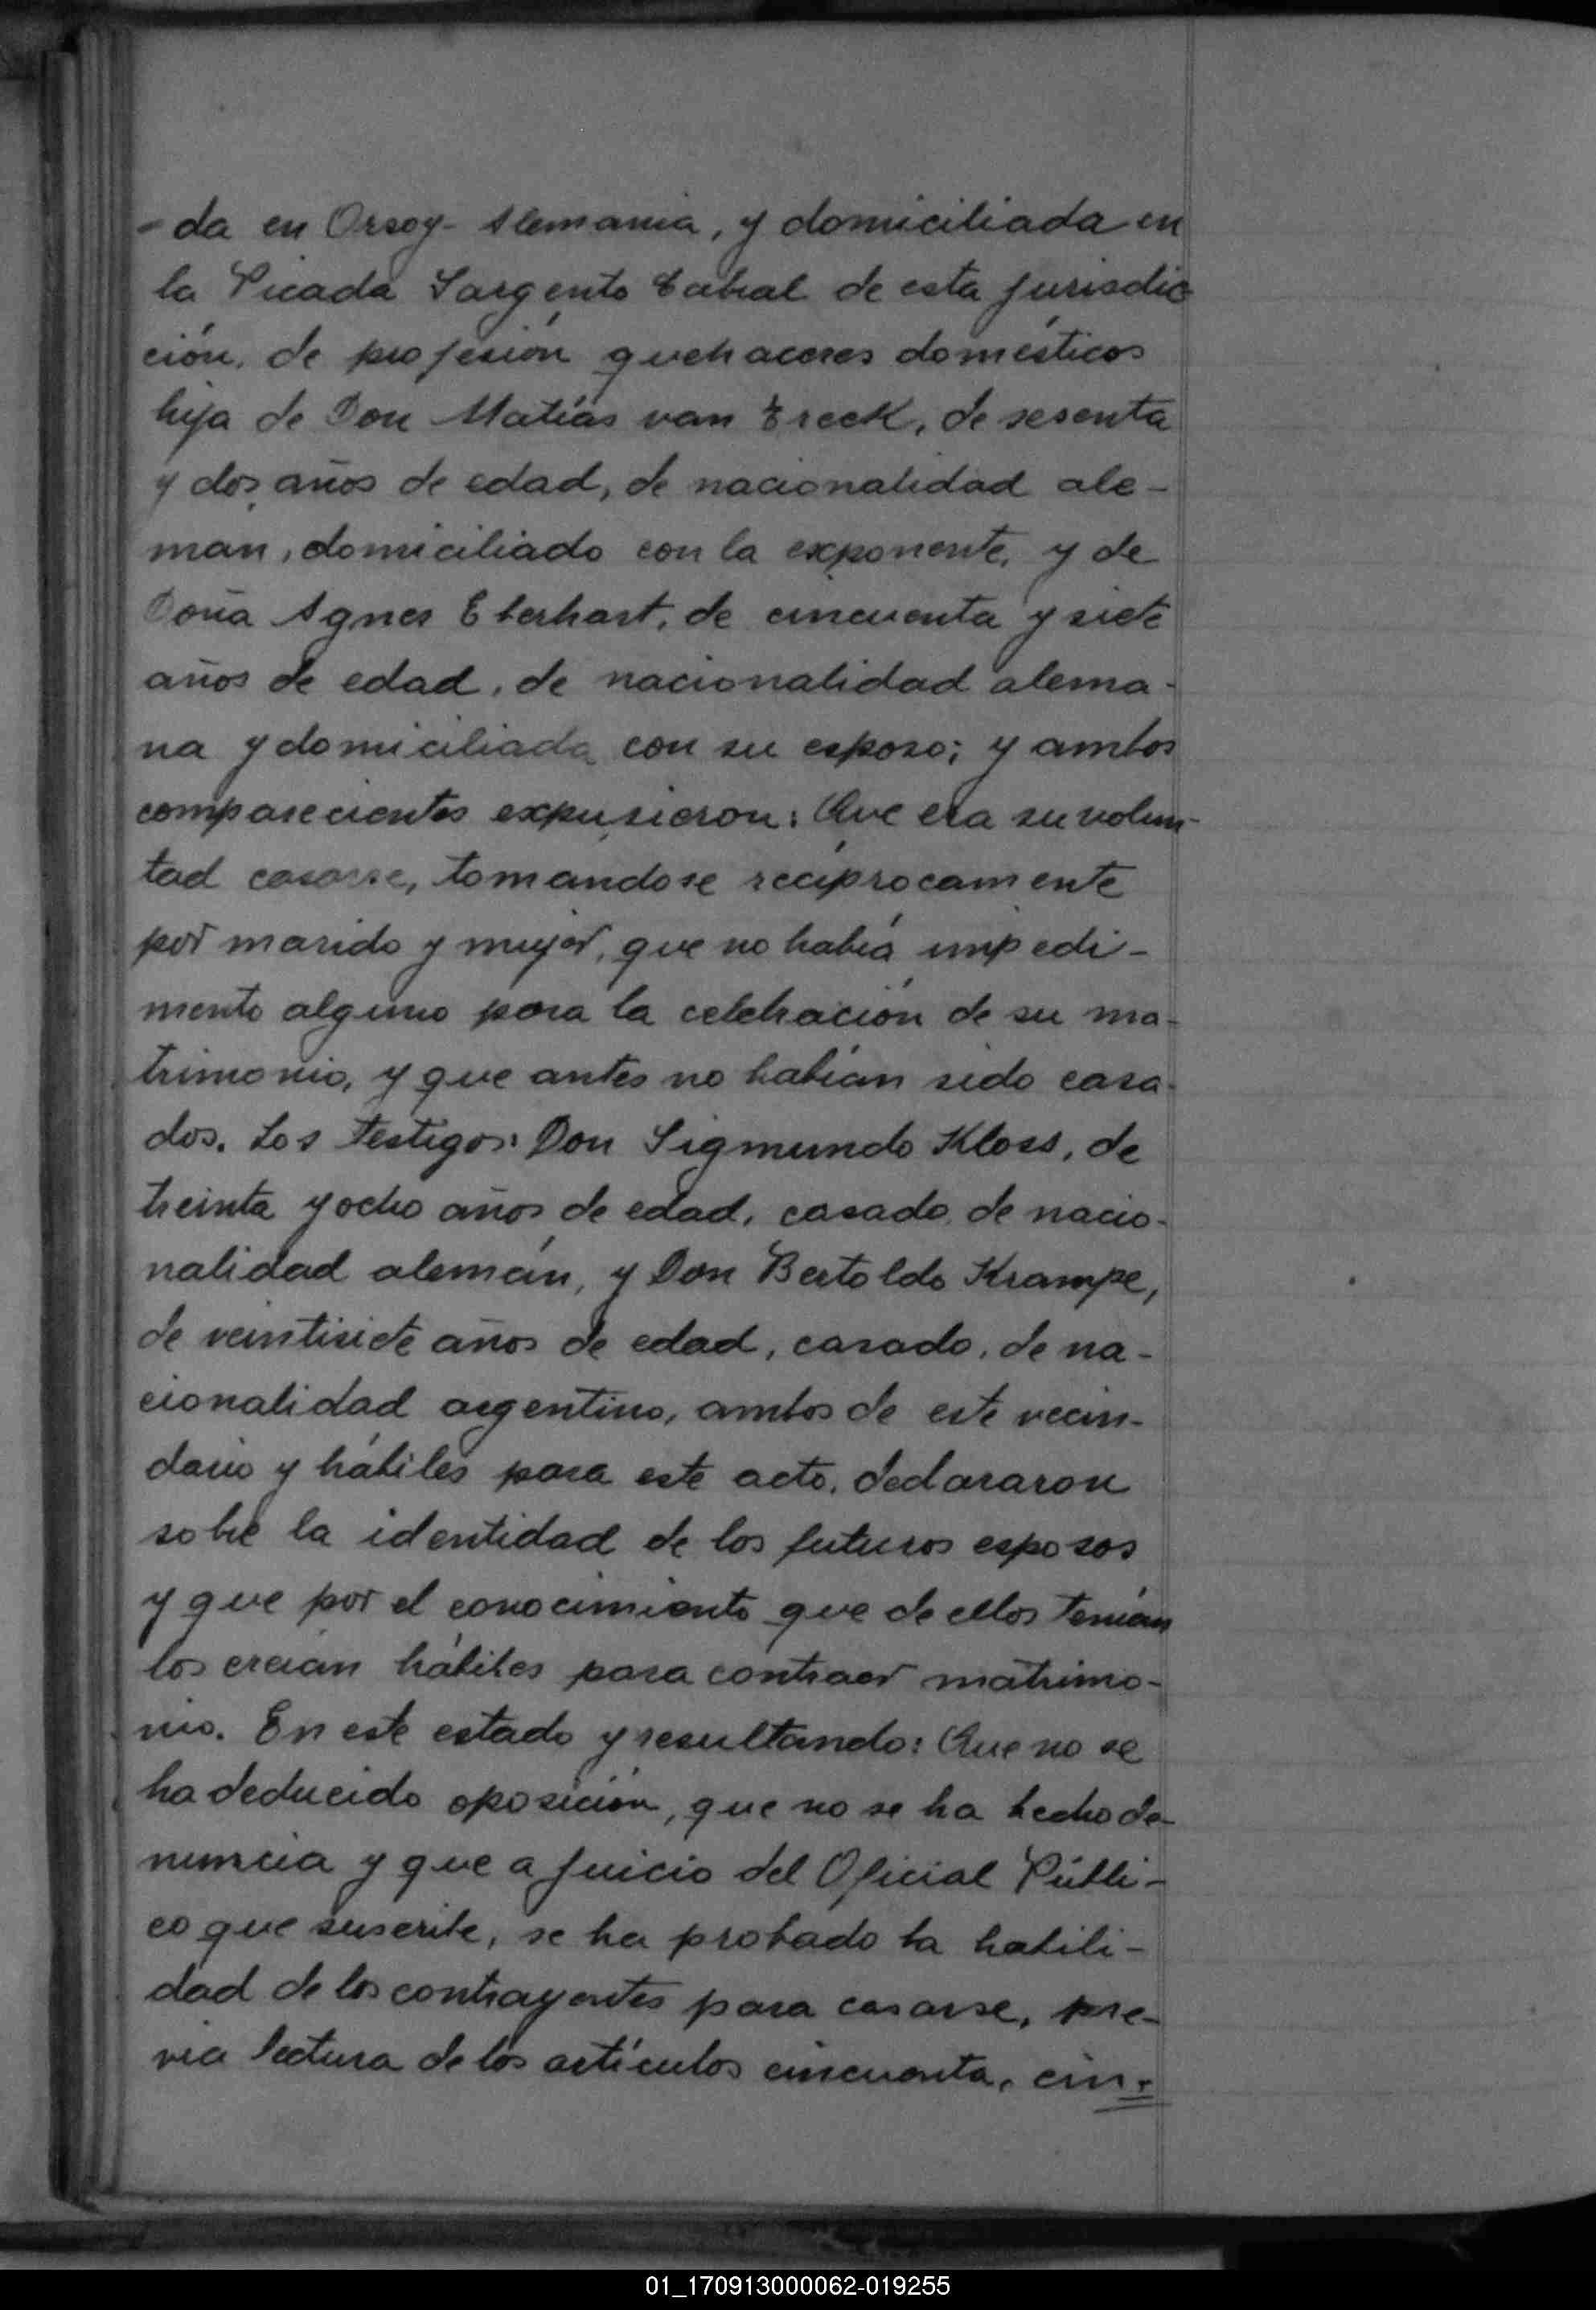 -da en Orsoy- Alemania, y domiciliada en
la Picada Sargento Cabral de esta jurisdic
ción, de profesión quehaceres domésticos
hija de Don Matías van Ereek, de sesenta
y dos años de edad, de nacionalidad ale-
mán, domiciliado con la exponente, y de
Doña Agnes Eberhart, de cincuenta y siete
años de edad, de nacionalidad alema-
na y domiciliada con su esposo; y ambos
comparecientes expusieron: Que era su volun-
tad casarse, tomándose recíprocamente
por marido y mujer, que no había impedi-
mento alguno para la celebración de su ma-
trimonio, y que antes no habían sido casa-
dos. Los testigos: Don Sigmundo Kloss, de
treinta y ocho años de edad, casado, de nacio-
nalidad alemán, y Don Bertoldo Krampe,
de veintisiete años de edad, casado, de na-
cionalidad argentino, ambos de este vecin-
dario y hábiles para este acto, declararon
sobre la identidad de los futuros esposos
y que por el conocimiento que de ellos tenían
los creían hábiles para contraer matrimo-
nio. En este estado y resultando: Que no se
ha deducido oposición, que no se ha hecho de-
nuncia y que a juicio del Oficial Públi-
co que suscribe, se ha probado la habili-
dad de los contrayentes para casarse, pre-
via lectura de los artículos cincuenta, cin-
01_170913000062-019255